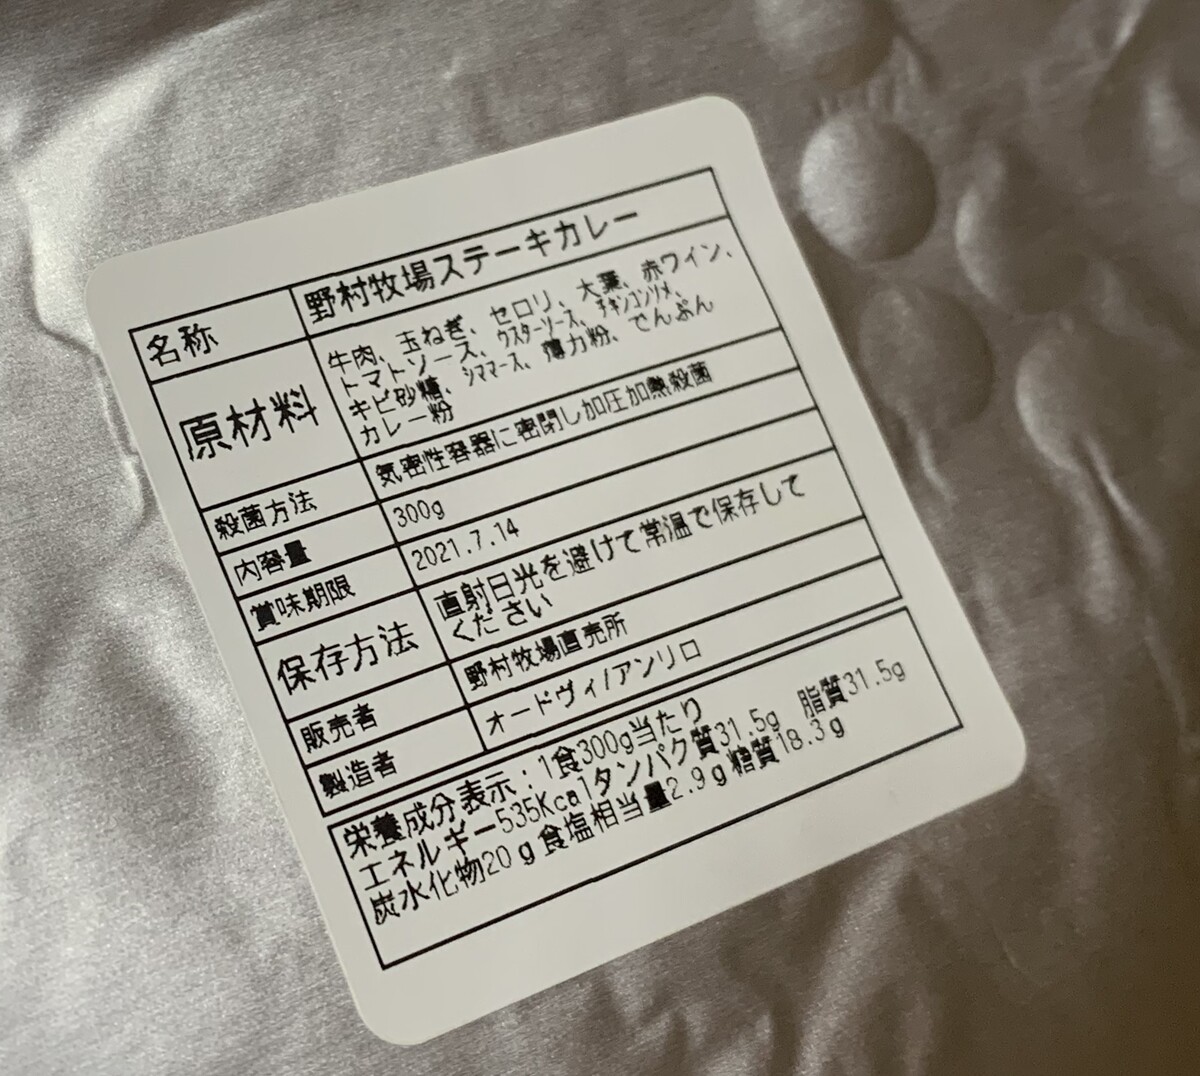 名称 野村牧場ステーキカレー
原材料 牛肉、玉ねぎ、セロリ、大葉、赤ワイン、
トマトソース、ウスターソース、チキンコンソメ、
キビ砂糖、シママース、薄力粉、でんぷん
カレー粉
殺菌方法 気密性容器に密閉し加圧加熱殺菌
内容量 300g
賞味期限 2021.7.14
保存方法 直射日光を避けて常温で保存して
ください
販売者 野村牧場直売所
製造者 オードヴィ/アンリロ
栄養成分表示:1食300g当たり
エネルギー535Kcalタンパク質31.5g 脂質31.5g
炭水化物20g食塩相当量2.9g糖質18.3g